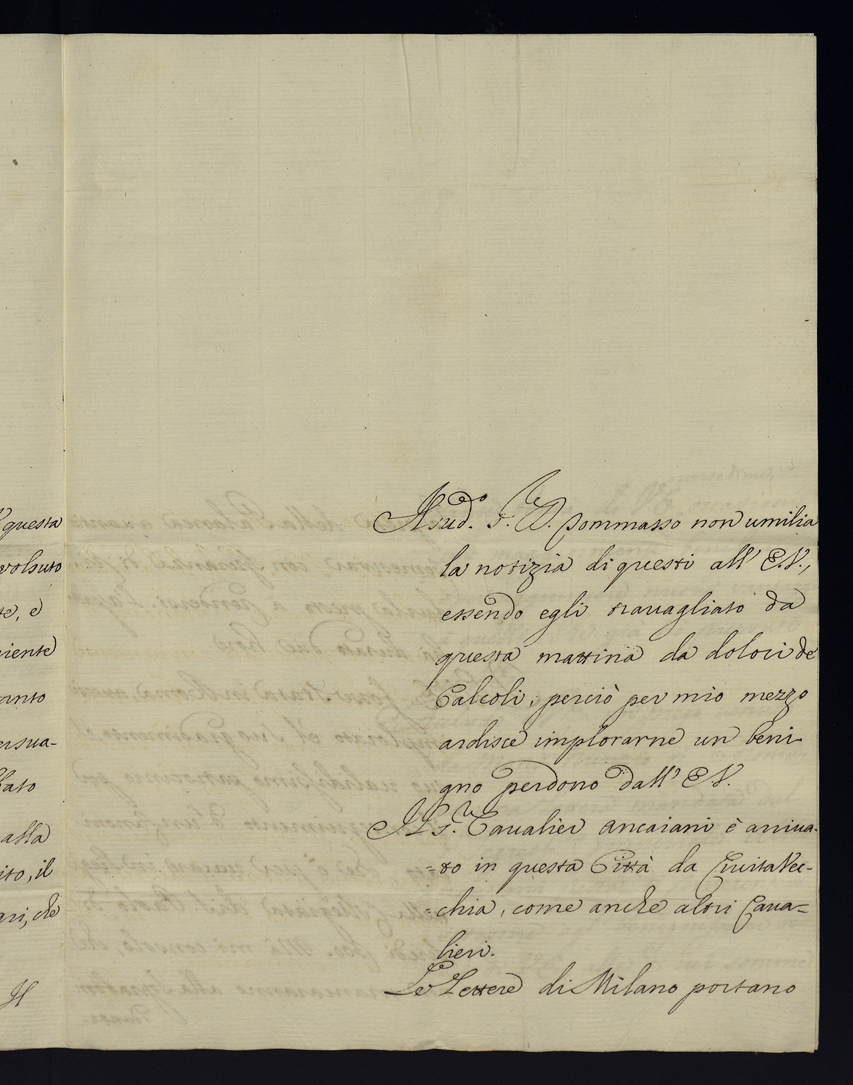 questa
volsuto
te, e
niente
anto
ersua-
bato
alla
ito, il
ari, che
Il
Il sud.o S.r D. Tommasso non umilia
la notizia di questi all' E.V.,
essendo egli travagliato da
questa mattina da dolori de
Calcoli, perciò per mio mezzo
ardisce implorarne un beni-
gno perdono dall' E.V.
Il S.r Cavalier Ancaiani è arriva-
=to in questa Città da CivitaVec-
=chia, come anche altri Cava=
lieri.
Le Lettere di Milano portano